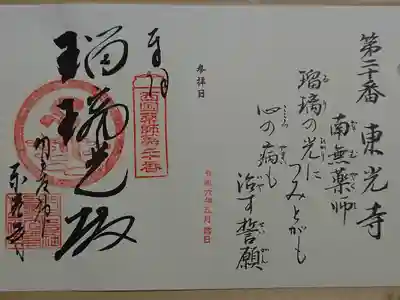 第二十番 東光寺
南無薬師
瑠璃の光に つみとがも
心の病も 治す誓願
参拝日
令和六年五月
奉拝
西国薬師第二十番
瑠璃光殿
門戸厄神
東光寺